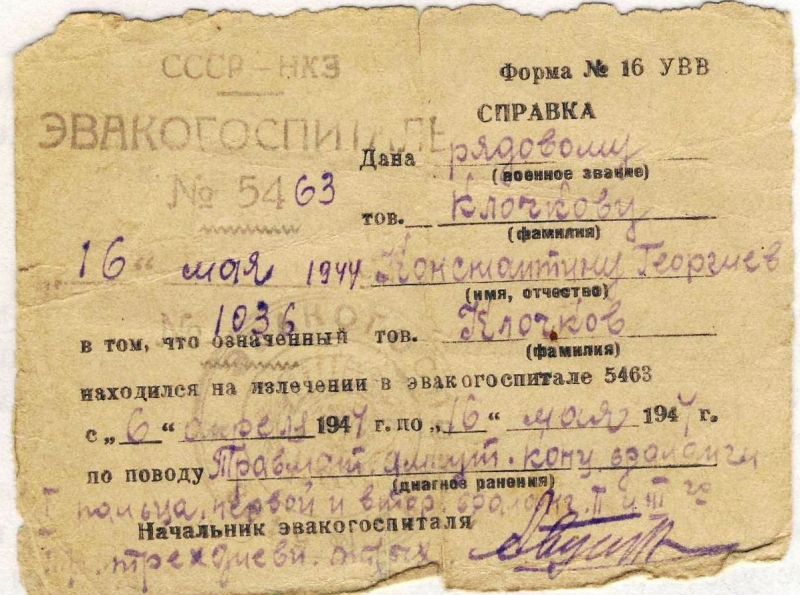 СССР - НКЗ
ЭВАКОГОСПИТАЛЬ
№ 5463
"16" мая 1944
№ 1036
Форма № 16 УВВ
СПРАВКА
Дана рядовому
(военное звание)
тов. Клочкову
(фамилия)
Константину Георгиев
(имя, отчество)
в том, что означенный тов. Клочков
(фамилия)
находился на излечении в эвакогоспитале 5463
с „6“ апреля 1944 г. по „16“ мая 1944 г.
по поводу Травмат. ампут. конц фаланги
(диагноз ранения)
I пальца, первой и втор. фаланг. II и III го
Начальник эвакогоспиталя